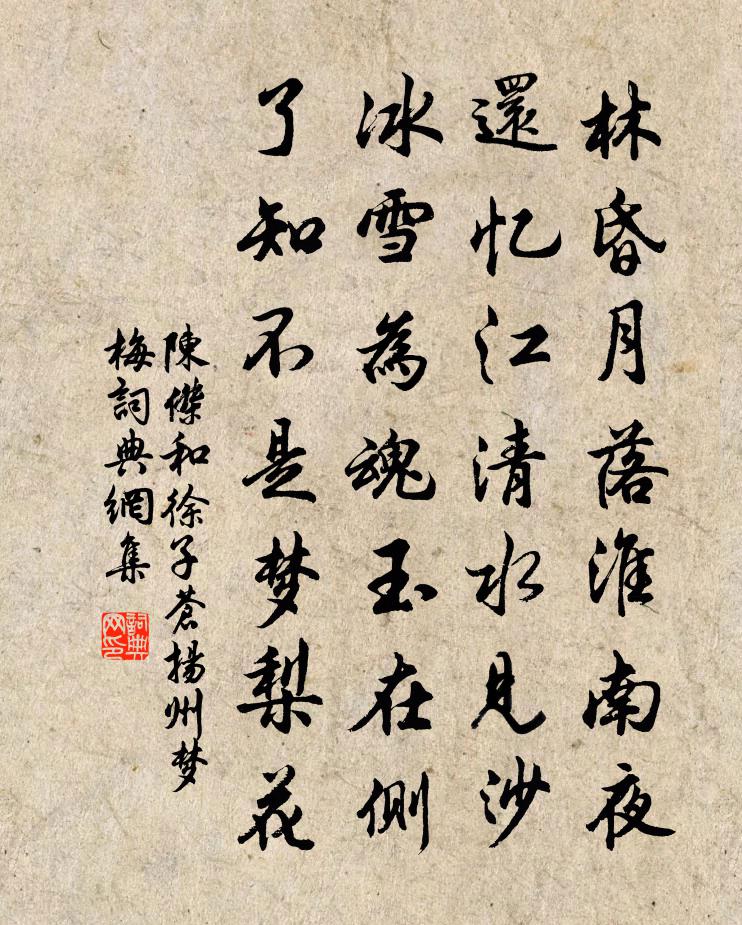 林昏月落淮南夜
還忆江清水见沙
冰雪為魂玉在側
了知不是梦梨花
陳傑和徐子蒼揚州梦
梅詞典網集
詞典网印